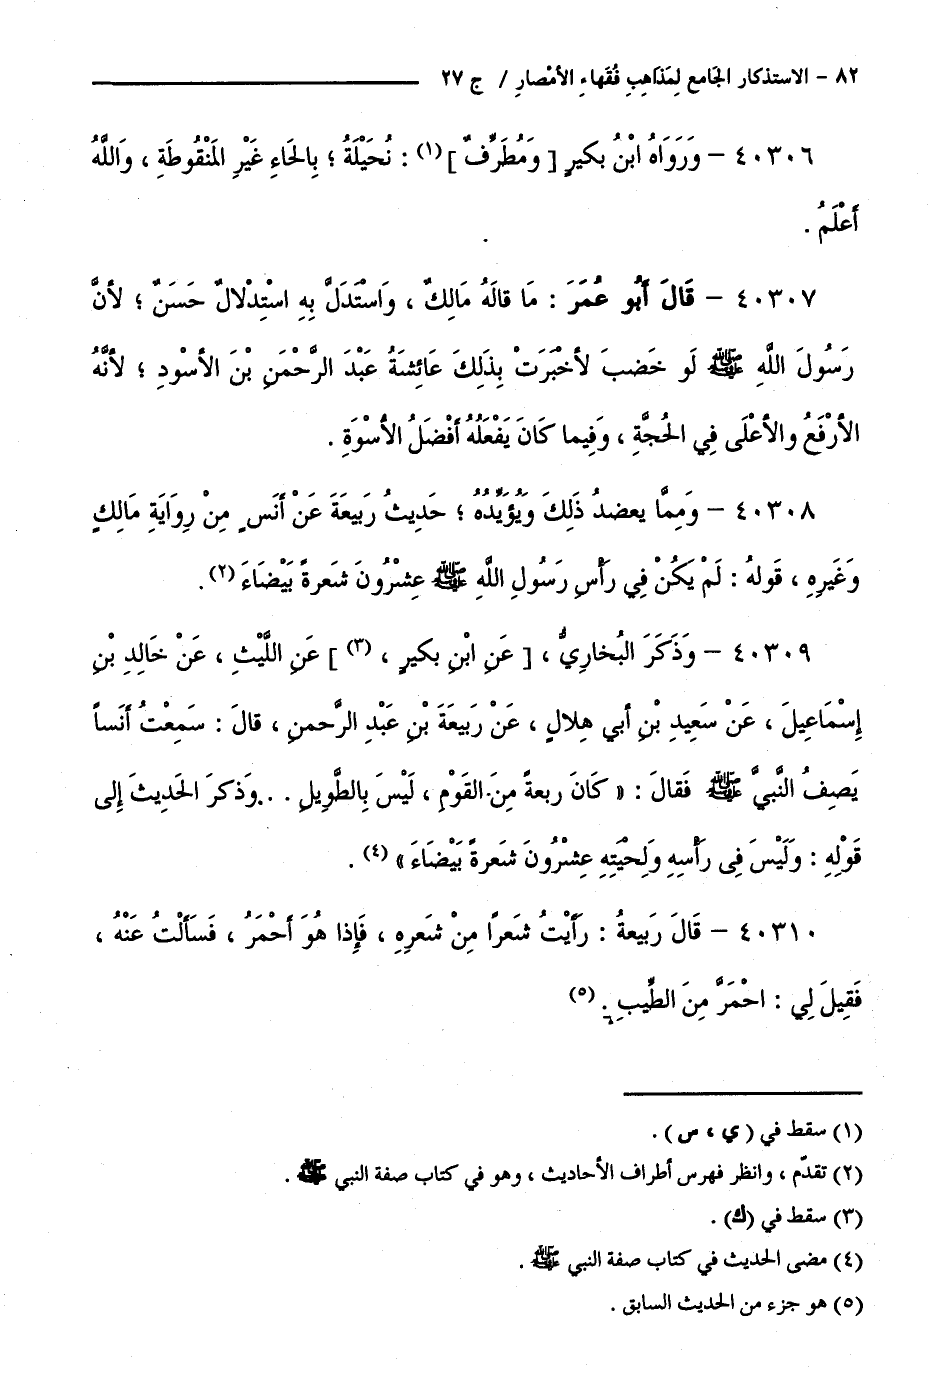 ٨٢ - الاستذكار الجَامع لِمَذاهِبِ فُقَهاءِ الأمْصارِ / ج ٢٧
٤٠٣٠٦ - وَرَوَاهُ ابْنُ بكيرٍ [ وَمُطَرِّفٌ ] (١) : نُحَيْلَةُ ؛ بِالحَاءِ غَيْرِ المَنْقُوطَةِ ، وَاللَّهُ
أَعْلَمُ .
٤٠٣٠٧ - قَالَ أَبُو عُمَرَ : مَا قالَهُ مَالِكٌ ، وَاسْتَدَلَّ بِهِ اسْتِدْلالٌ حَسَنٌ ؛ لأنَّ
رَسُولَ اللَّهِ ﷺ لَو خَضبَ لأخْبَرَتْ بِذَلِكَ عَائِشَةُ عَبْدَ الرَّحْمَنِ بْنَ الأسْودِ ؛ لأنَّهُ
الأرْفَعُ والأعْلَى فِي الحُجَّةِ ، وَفِيما كَانَ يَفْعَلُهُ أفْضَلُ الأسْوَةِ .
٤٠٣٠٨ - وَمِمَّا يعضدُ ذَلِكَ وَيُؤَيِّدُهُ ؛ حَدِيثُ رَبِيعَةَ عَنْ أنَسٍ مِنْ رِوَايَةِ مَالِكٍ
وَغَيرِهِ ، قَولهُ : لَمْ يَكُنْ فِي رَأْسِ رَسُولِ اللَّهِ ﷺ عِشْرُونَ شَعرةً بَيْضَاءَ (٢) .
٤٠٣٠٩ - وَذَكَرَ البُخارِيُّ ، [ عَنِ ابْنِ بكيرٍ ، (٣) ] عَنِ اللَّيْثِ ، عَنْ خَالِدِ بْنِ
إِسْمَاعِيلَ ، عَنْ سَعِيدِ بْنِ أبي هِلالٍ ، عَنْ رَبِيعَةَ بْنِ عَبْدِ الرَّحمنِ ، قالَ : سَمِعْتُ أنَساً
يَصِفُ النَّبيَّ ﷺ فَقالَ : « كَانَ ربعةً مِنَ القَوْمِ ، لَيْسَ بِالطَّوِيلِ . . . وَذكرَ الحَدِيثَ إِلى
قَوْلِهِ : وَلَيْسَ فِى رَأْسِهِ وَلِحْيَتِهِ عِشْرُونَ شَعرةً بَيْضَاءَ » (٤) .
٤٠٣١٠ - قَالَ رَبِيعةُ : رَأَيْتُ شَعَرًا مِنْ شَعَرِهِ ، فَإِذا هُوَ أَحْمَرُ ، فَسَأَلْتُ عَنْهُ ،
فَقِيلَ لِي : احْمَرَّ مِنَ الطِّيبِ . (٥)
(١) سقط في (ي ، س) .
(٢) تقدّم ، وانظر فهرس أطراف الأحاديث ، وهو في كتاب صفة النبي ﷺ .
(٣) سقط في (ك) .
(٤) مضى الحديث في كتاب صفة النبي ﷺ .
(٥) هو جزء من الحديث السابق .